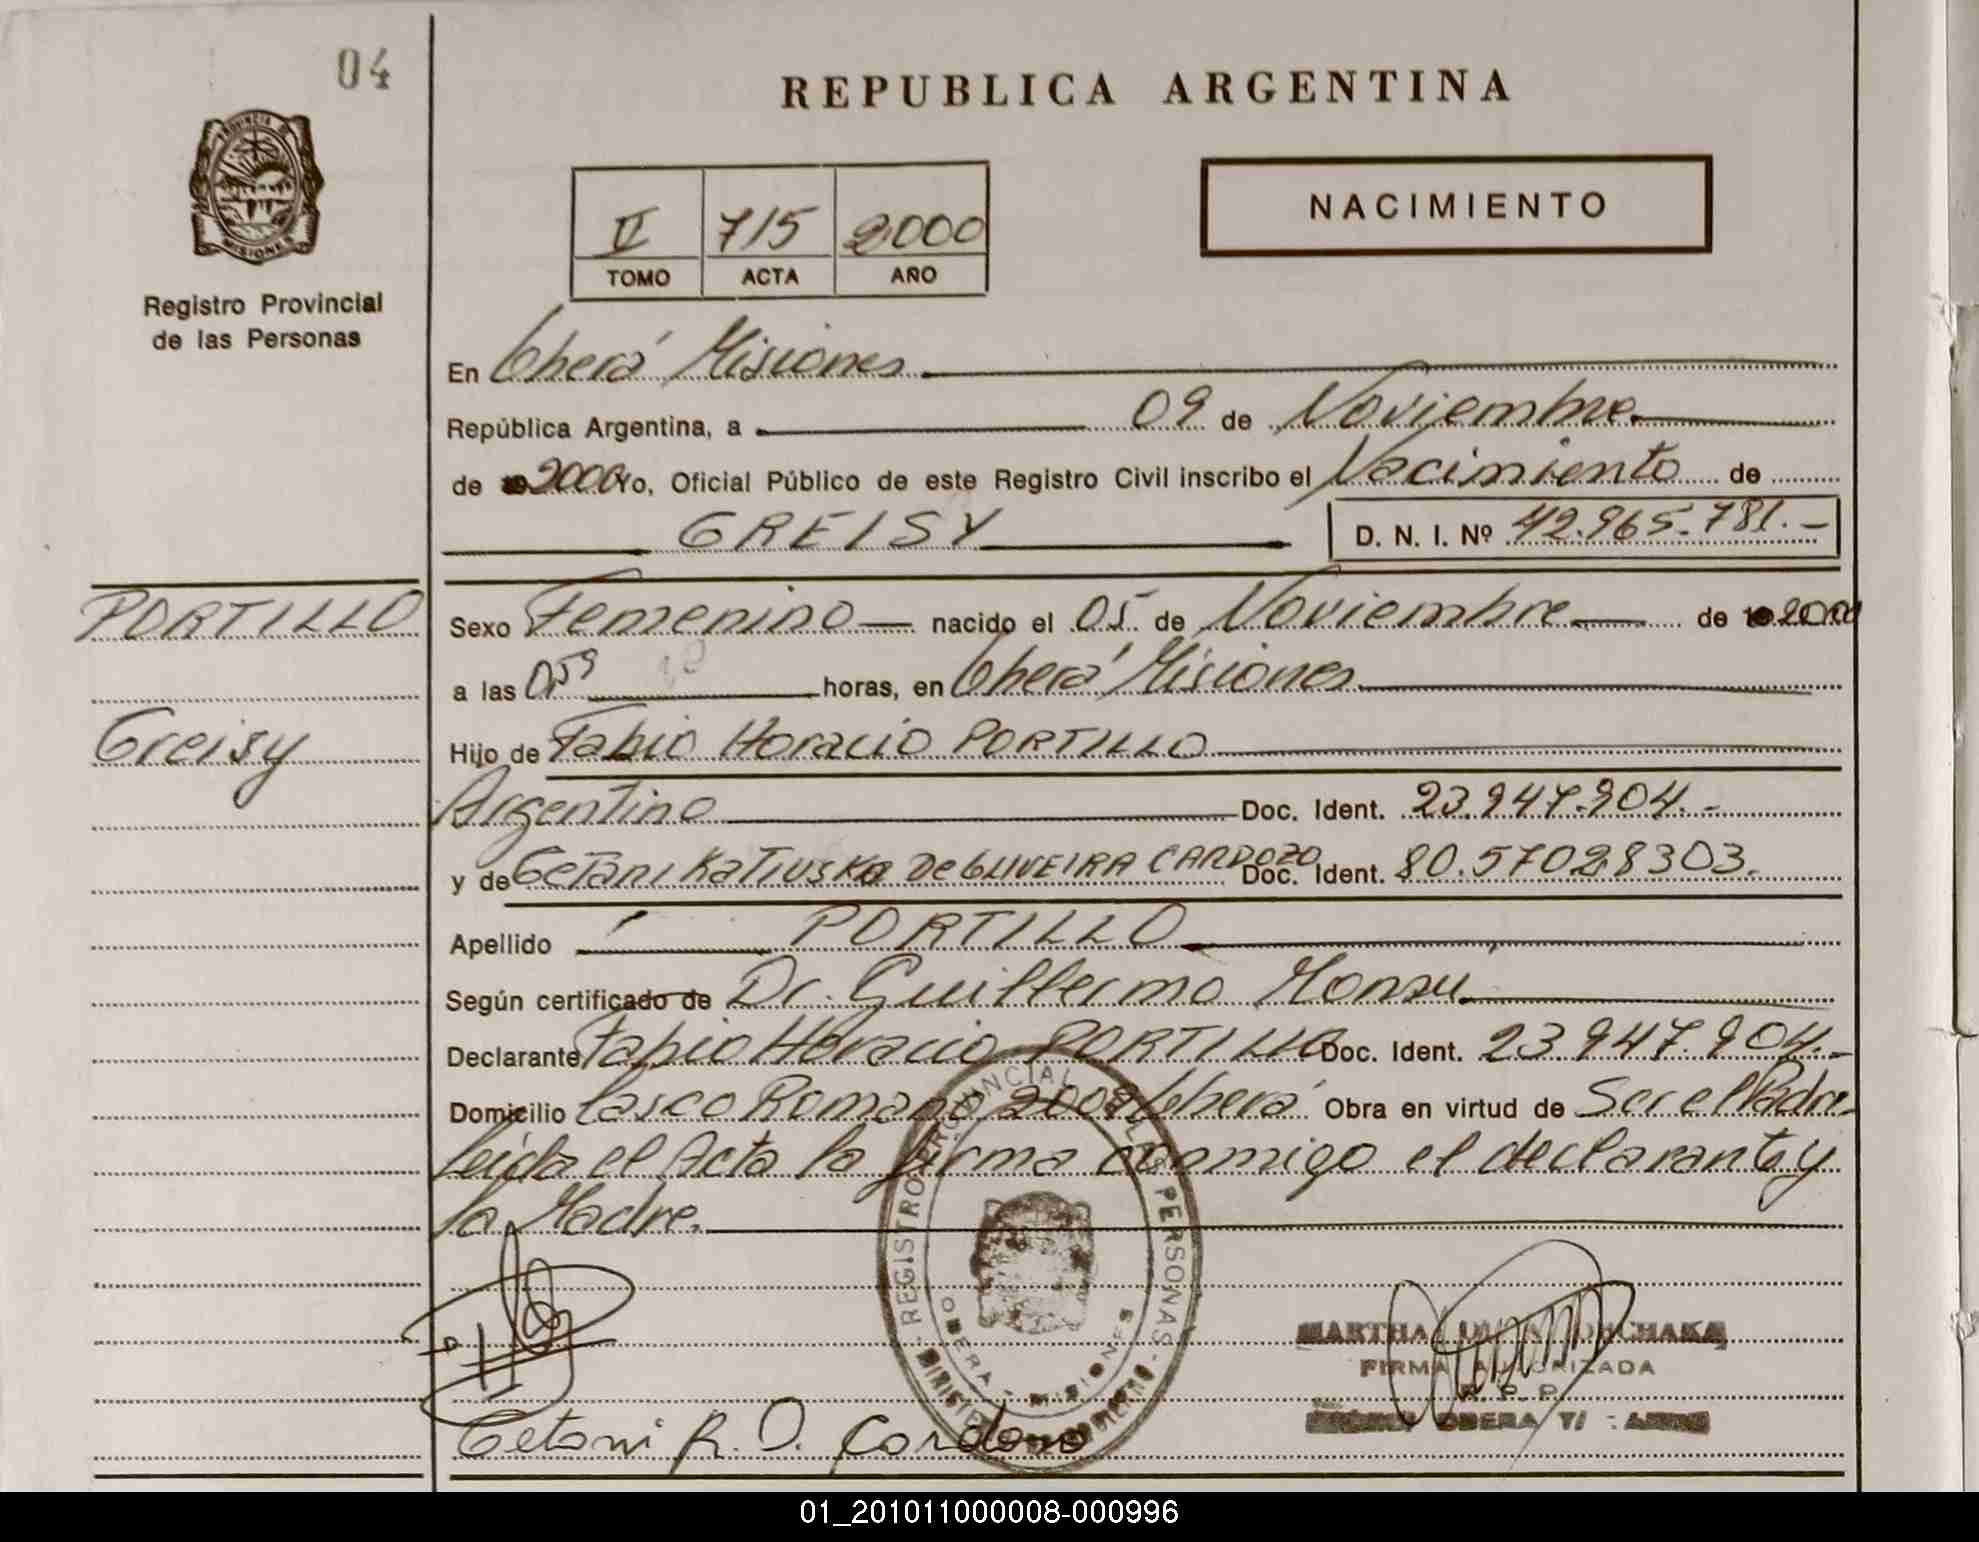 04
REPUBLICA ARGENTINA
PROVINCIA DE
MISIONES
Registro Provincial
de las Personas
II 715 2000
TOMO ACTA AÑO
NACIMIENTO
En Oberá Misiones
República Argentina, a 09 de Noviembre
de 2000 Yo, Oficial Público de este Registro Civil inscribo el Nacimiento de
GREISY
D. N. I. Nº 42.965.781.-
PORTILLO
Greisy
Sexo Femenino nacido el 05 de Noviembre de 2000
a las horas, en Oberá Misiones
Hijo de Fabio Horacio PORTILLO
Argentino Doc. Ident. 23.947.904.-
y de Cetani Katiuska De OLIVEIRA CARDOZO Doc. Ident. 80.57028303.
Apellido PORTILLO
Según certificado de Dr. Guillermo Monzu
Declarante Fabio Horacio PORTILLO Doc. Ident. 23.947.904.-
Domicilio Casco Romano 2008 Oberá Obra en virtud de Ser el Padre
leída el Acta la firma conmigo el declarante y
la Madre.
REGISTRO PROVINCIAL DE LAS PERSONAS
OBERA - MISIONES
MINISTERIO DE GOBIERNO
MARTHA
FIRMA AUTORIZADA
R. P. P.
OBERA
Cetani K. O. Cardozo
01_201011000008-000996